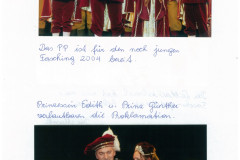 Das PP ist für den noch jungen
Fasching 2004 bereit.
Prinzessin Edith u. Prinz Günther
verlautbaren die Proklamation.